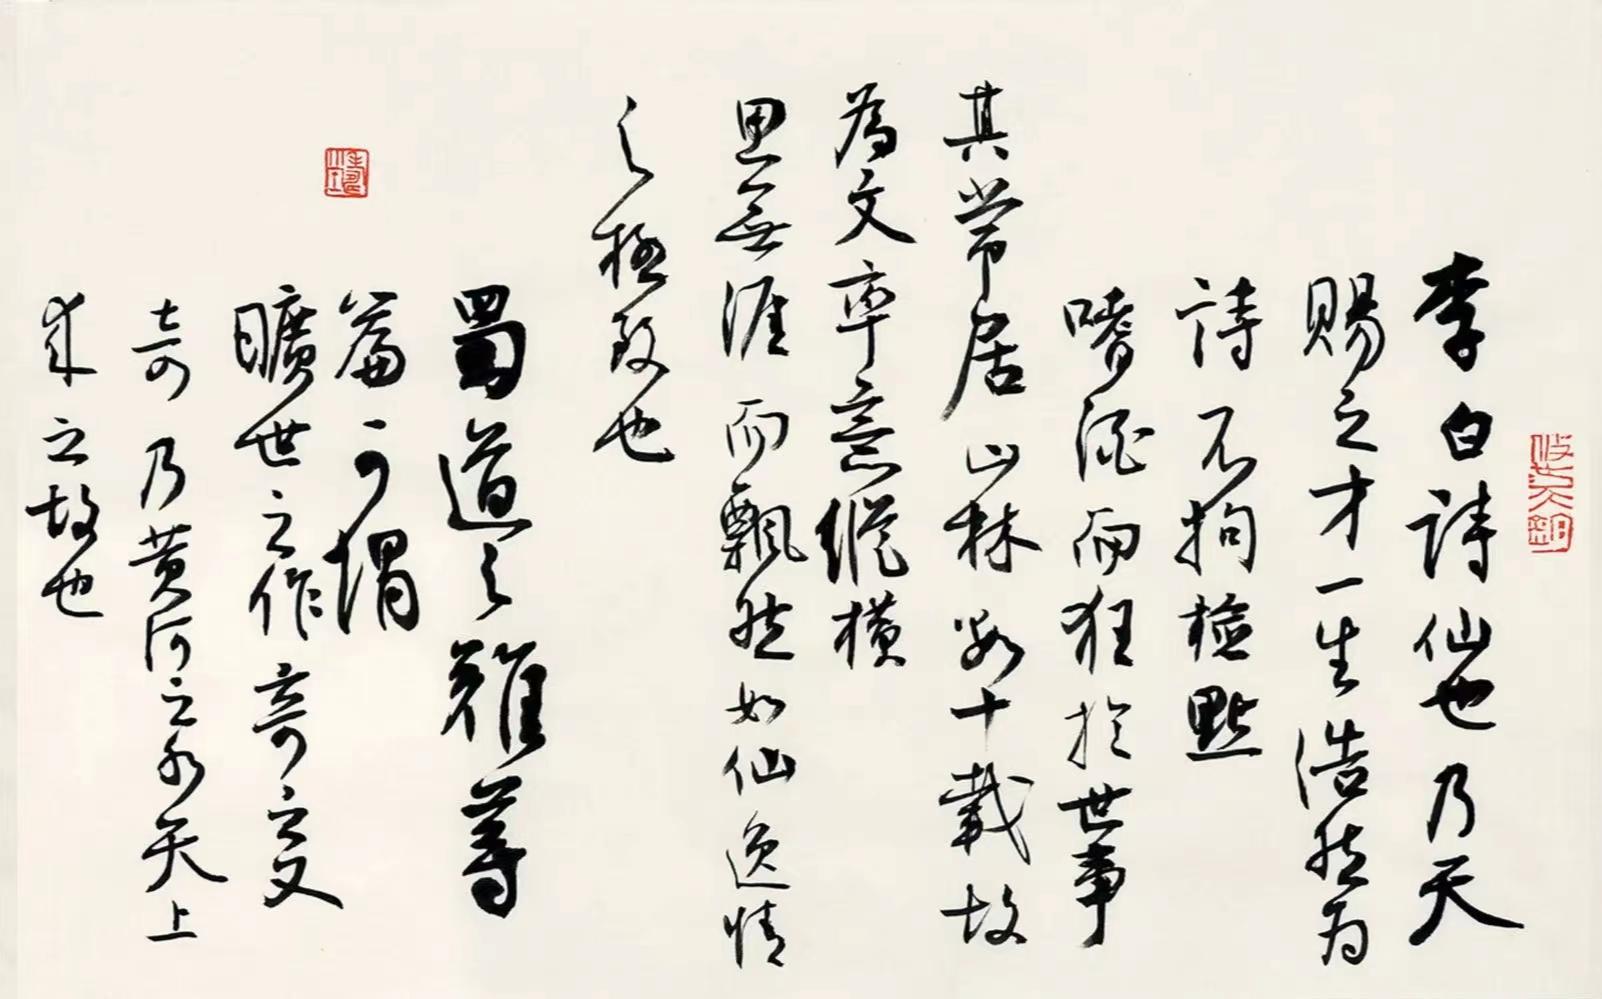 李白詩仙也乃天
賜之才一生浩然为
詩不拘檢點
嗜酒而狂於世事
其常居山林數十載故
為文率意縱橫
思無涯而飄然如仙逸情
之極致也
蜀道之難等
篇可謂
曠世之作奇之又
奇乃黄河之水天上
來之故也